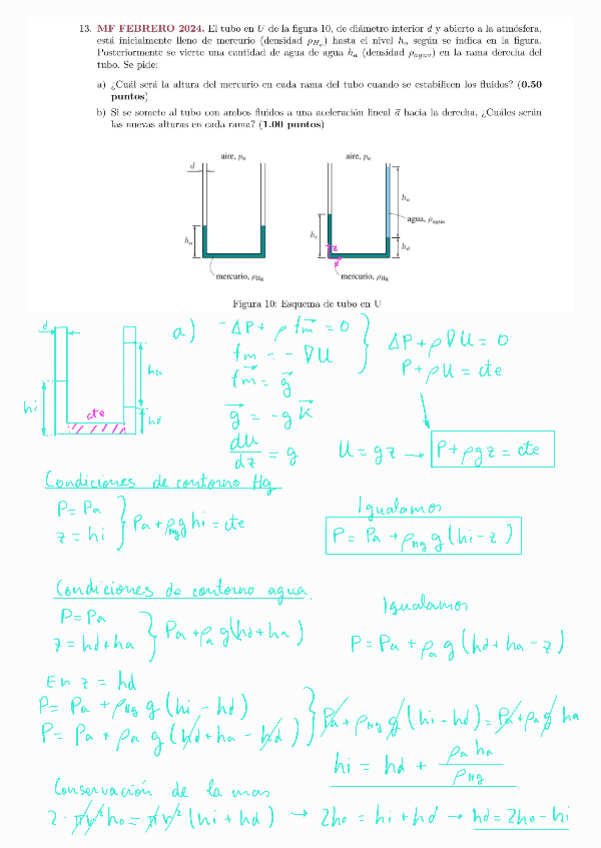 13. MF FEBRERO 2024. El tubo en U de la figura 10, de diámetro interior d y abierto a la atmósfera,
está inicialmente lleno de mercurio (densidad ρ_Hg) hasta el nivel h_o según se indica en la figura.
Posteriormente se vierte una cantidad de agua de agua h_a (densidad ρ_agua) en la rama derecha del
tubo. Se pide:
a) ¿Cuál será la altura del mercurio en cada rama del tubo cuando se estabilicen los fluidos? (0.50
puntos)
b) Si se somete al tubo con ambos fluidos a una aceleración lineal a⃗ hacia la derecha, ¿Cuáles serán
las nuevas alturas en cada rama? (1.00 puntos)
aire, p_a
aire, p_a
d
h_a
agua, ρ_agua
h_o
h_i
z
h_d
x
mercurio, ρ_Hg
mercurio, ρ_Hg
Figura 10: Esquema de tubo en U
d
ha
hi
cte
hd
a) -ΔP + ρ fm = 0
fm = - ∇U
fm = g⃗
g⃗ = -g k⃗
dU/dz = g
ΔP + ρ∇U = 0
P + ρU = cte
U = gz → P + ρgz = cte
Condiciones de contorno Hg
P = Pa
z = hi } Pa + ρHg g hi = cte
Igualamos
P = Pa + ρHg g (hi - z)
Condiciones de contorno agua.
P = Pa
z = hd + ha } Pa + ρa g(hd + ha)
Igualamos
P = Pa + ρa g (hd + ha - z)
En z = hd
P = Pa + ρHg g (hi - hd)
P = Pa + ρa g (hd + ha - hd) } Pa + ρHg g (hi - hd) = Pa + ρa g ha
hi = hd + ρa ha / ρHg
Conservación de la mas
2 · π r² ho = π r² (hi + hd) → 2ho = hi + hd → hd = 2ho - hi